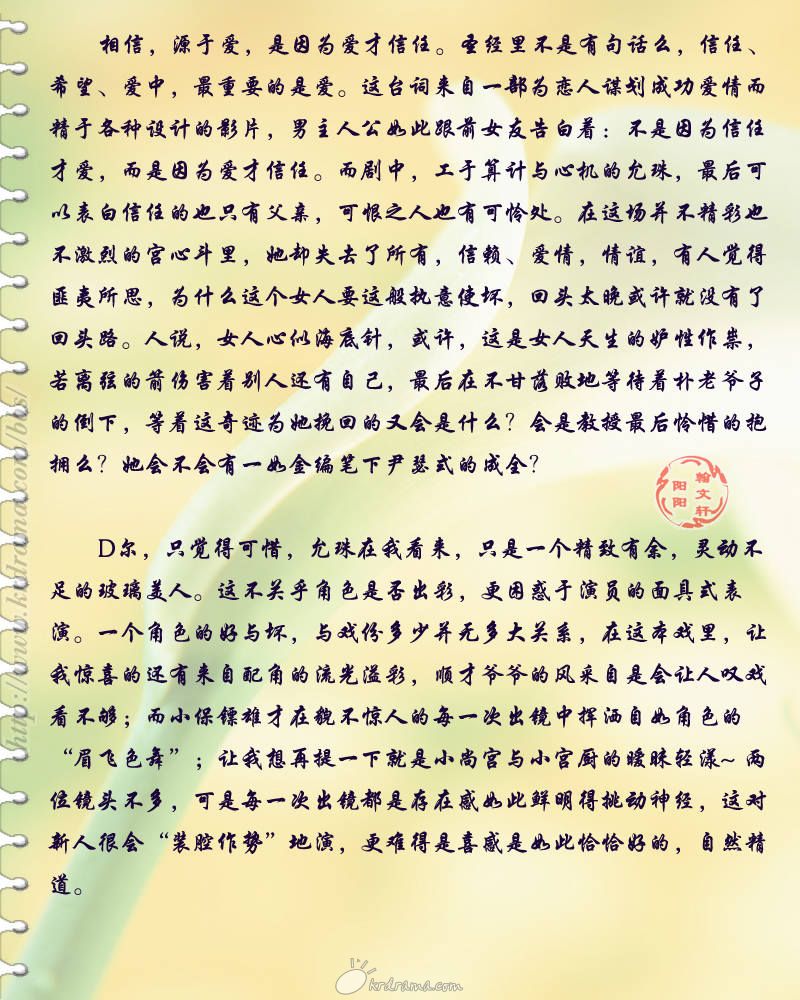 相信，源于爱，是因为爱才信任。圣经里不是有句话么，信任、
希望、爱中，最重要的是爱。这台词来自一部为恋人谋划成功爱情而
精于各种设计的影片，男主人公如此跟前女友告白着：不是因为信任
才爱，而是因为爱才信任。而剧中，工于算计与心机的允珠，最后可
以表白信任的也只有父亲，可恨之人也有可怜处。在这场并不精彩也
不激烈的宫心斗里，她却失去了所有，信赖、爱情，情谊，有人觉得
匪夷所思，为什么这个女人要这般执意使坏，回头太晚或许就没有了
回头路。人说，女人心似海底针，或许，这是女人天生的妒性作祟，
若离弦的箭伤害着别人还有自己，最后在不甘落败地等待着朴老爷子
的倒下，等着这奇迹为她挽回的又会是什么？会是教授最后怜惜的抱
拥么？她会不会有一如金编笔下尹瑟式的成全？
翰文轩
阳阳
D尔，只觉得可惜，允珠在我看来，只是一个精致有余，灵动不
足的玻璃美人。这不关乎角色是否出彩，更困惑于演员的面具式表
演。一个角色的好与坏，与戏份多少并无多大关系，在这本戏里，让
我惊喜的还有来自配角的流光溢彩，顺才爷爷的风采自是会让人叹戏
看不够；而小保镖雄才在貌不惊人的每一次出镜中挥洒自如角色的
“眉飞色舞”；让我想再提一下就是小尚宫与小宫厨的暧昧轻漾~ 两
位镜头不多，可是每一次出镜都是存在感如此鲜明得挑动神经，这对
新人很会“装腔作势”地演，更难得是喜感是如此恰恰好的，自然精
道。
http://www.krdrama.com/bbs/
krdrama.com